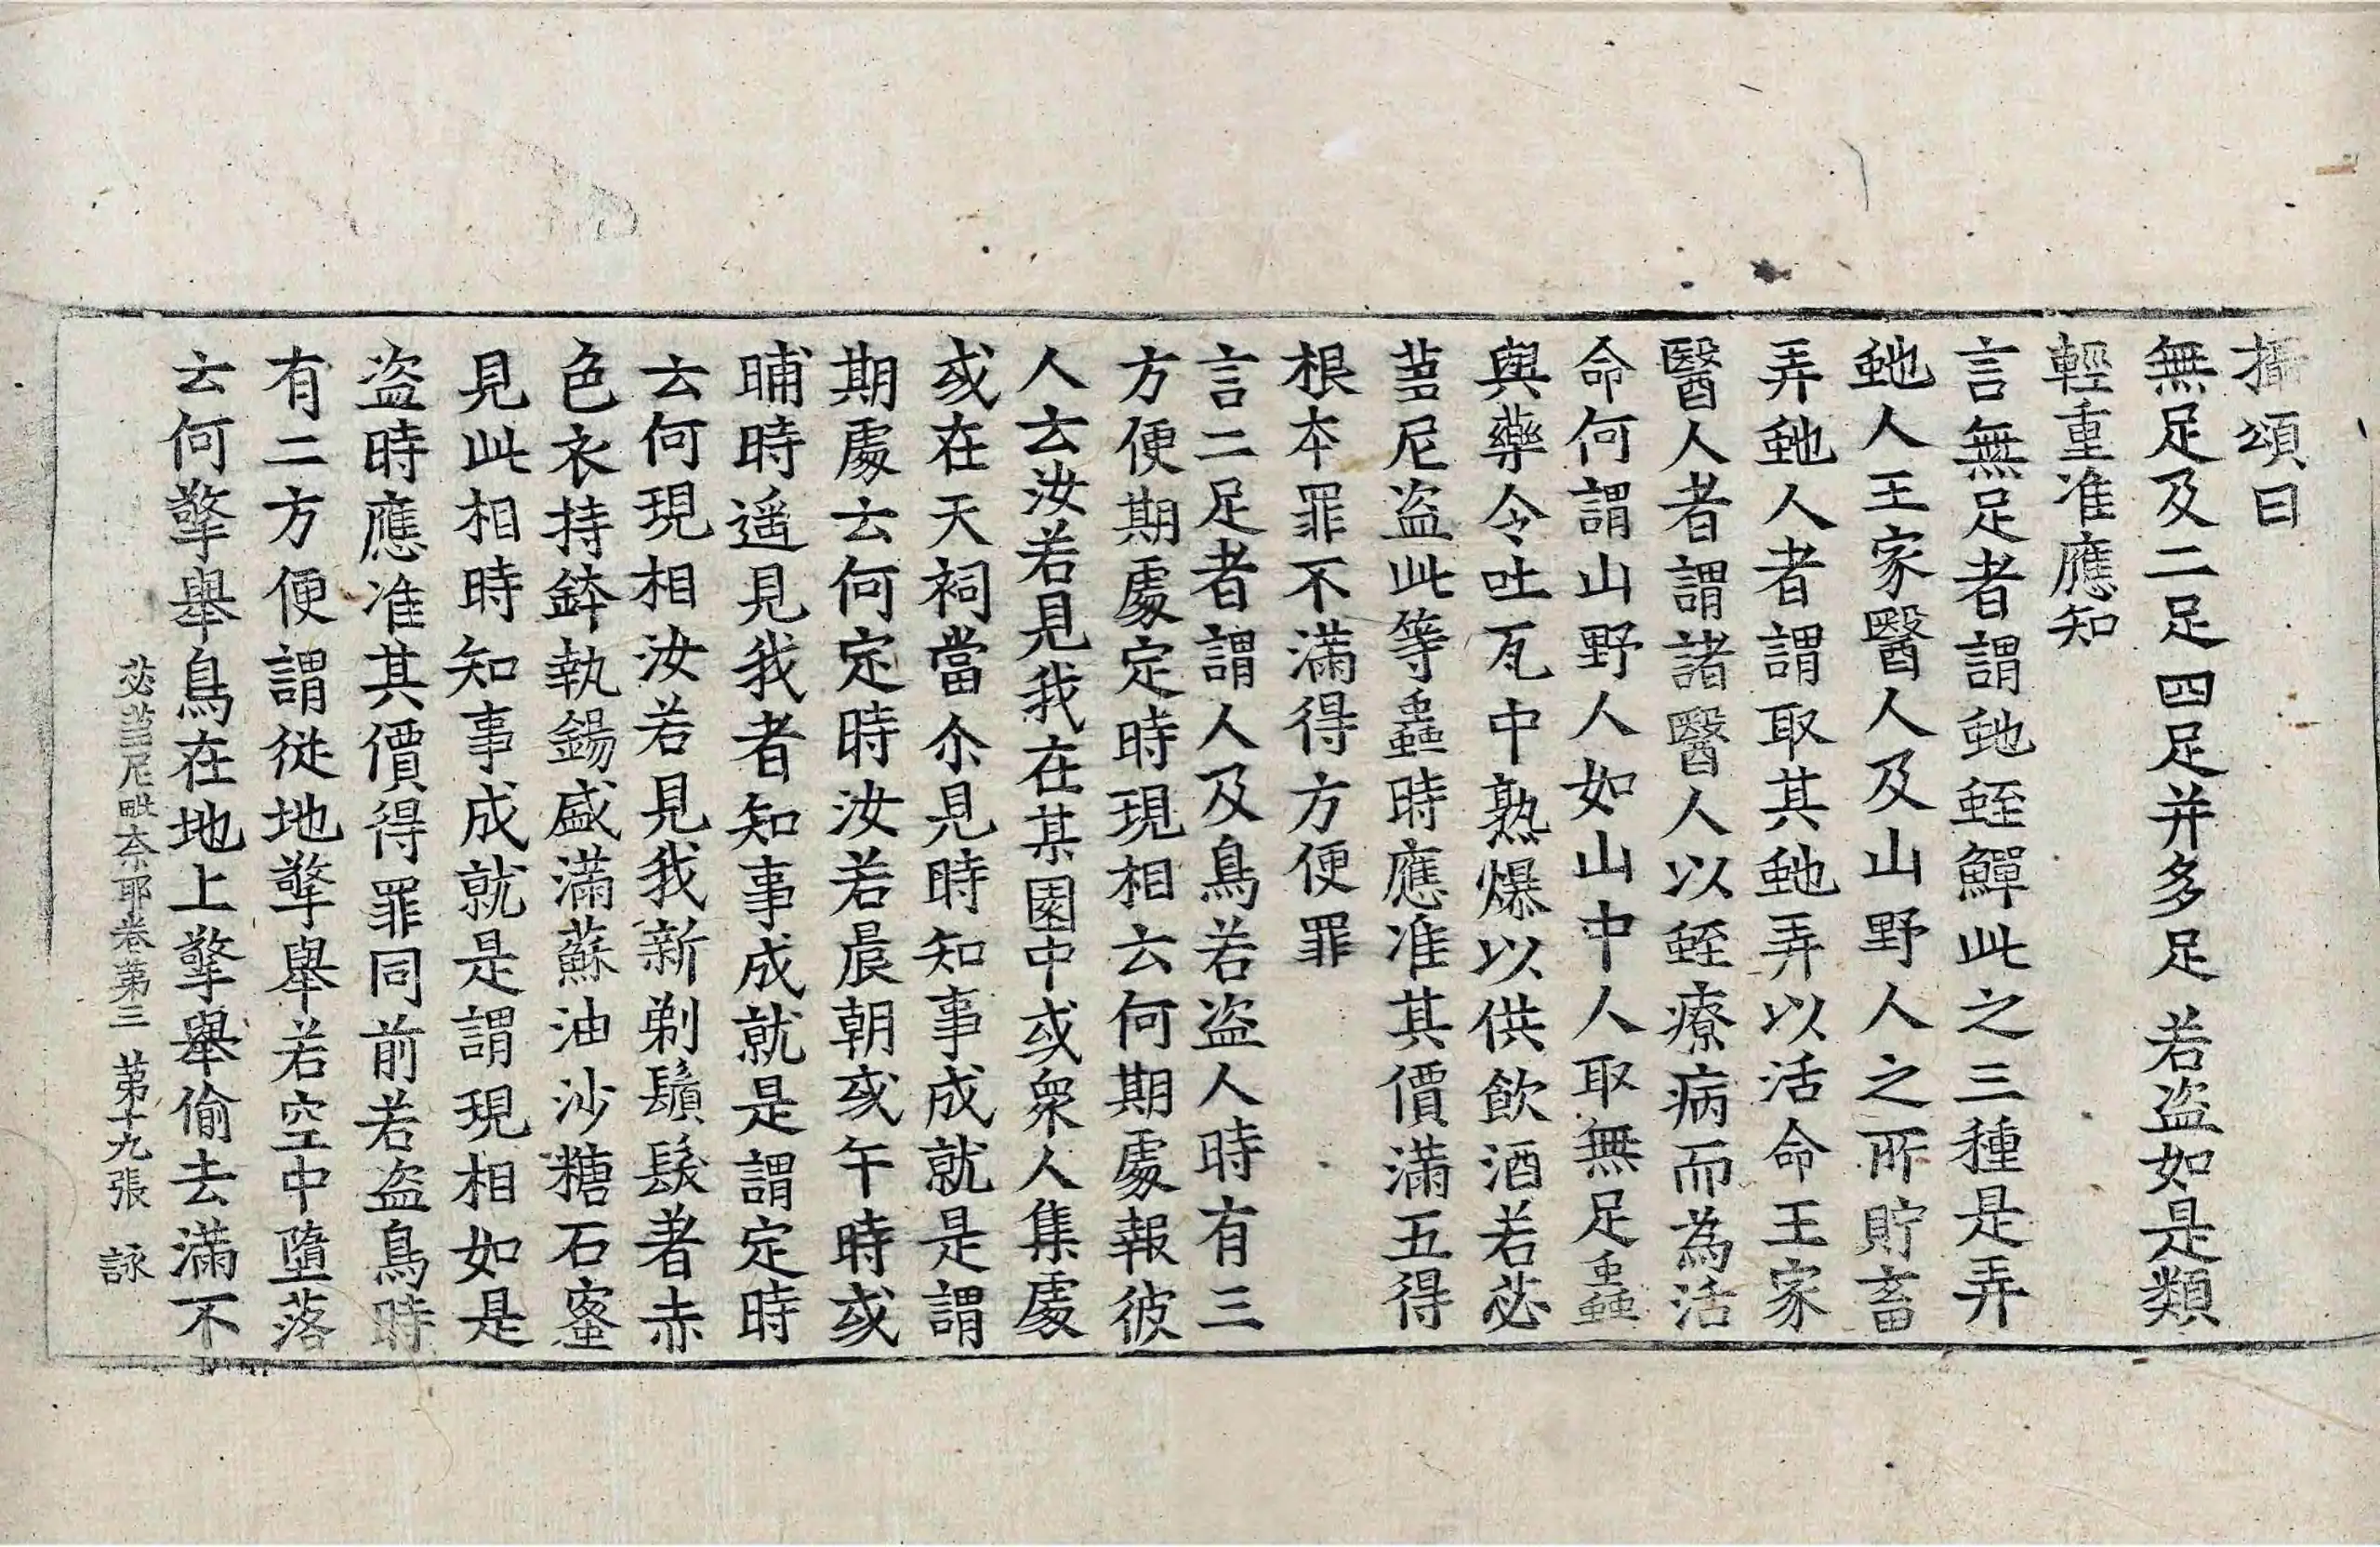 攝頌曰
無足及二足四足并多足　若盜如是類
輕重准應知
言無足者謂虵蛭鱓此之三種是弄
虵人王家醫人及山野人之所貯畜
弄虵人者謂取其虵弄以活命王家
醫人者謂諸醫人以蛭療病而為活
命何謂山野人如山中人取無足蟲
與藥令吐瓦中熟爆以供飲酒若苾
芻尼盜此等蟲時應准其價滿五得
根本罪不滿得方便罪
言二足者謂人及鳥若盜人時有三
方便期處定時現相云何期處報彼
人云汝若見我在某園中或眾人集處
或在天祠當尒見時知事成就是謂
期處云何定時汝若晨朝或午時或
晡時遥見我者知事成就是謂定時
云何現相汝若見我新剃鬚髮著赤
色衣持鉢執錫盛滿蘇油沙糖石蜜
見此相時知事成就是謂現相如是
盜時應准其價得罪同前若盜鳥時
有二方便謂從地擎舉若空中墮落
云何擎舉鳥在地上擎舉偷去滿不
苾芻尼毗奈耶卷第三　第十九張　詠